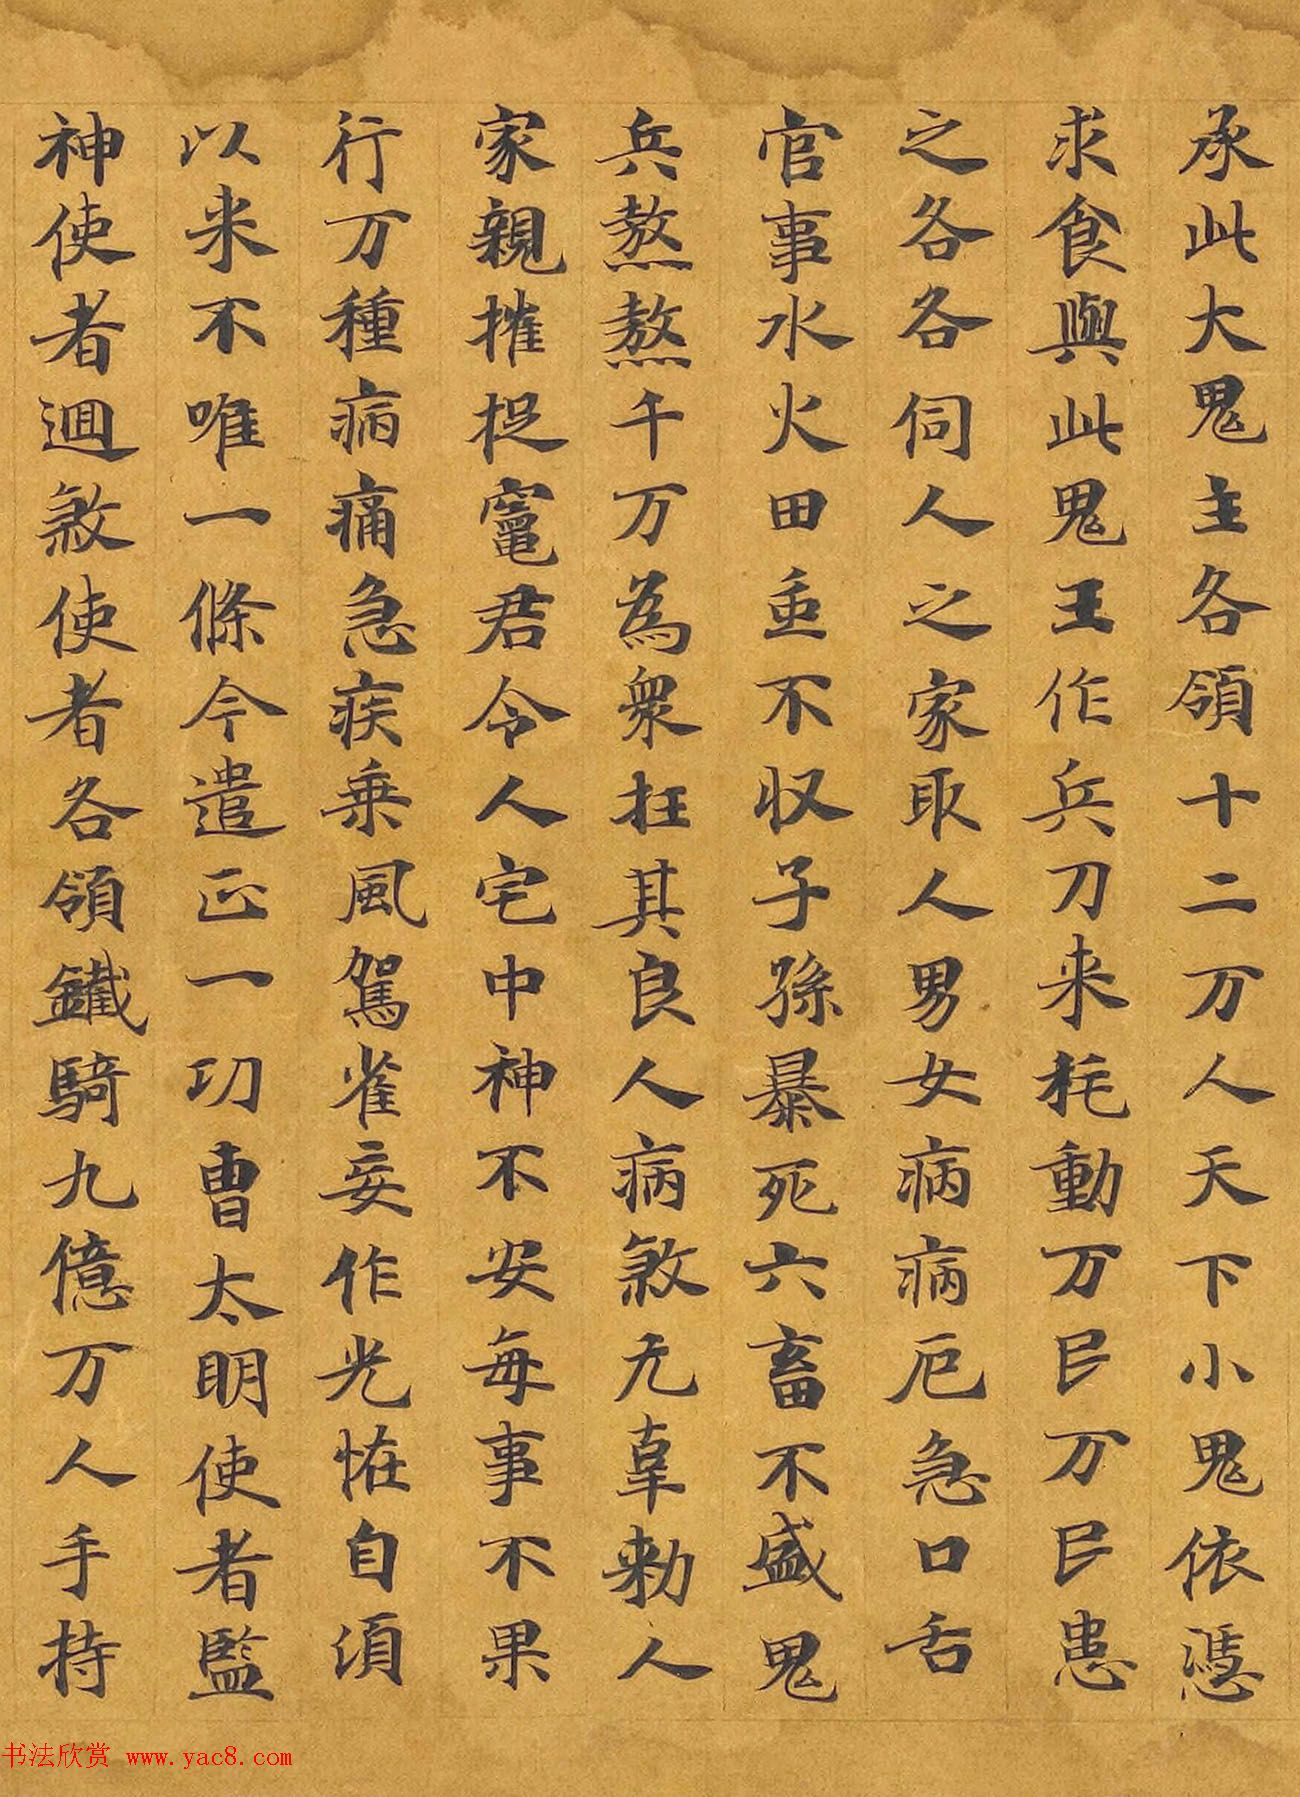 承此大鬼主各領十二万人天下小鬼依憑
求食與此鬼王作兵刀来耗動万民万民患
之各各伺人之家取人男女病病厄急口舌
官事水火田蚕不収子孫暴死六畜不盛鬼
兵熬熬千万為衆抂其良人病煞无辜勑人
家親摧捉竈君令人宅中神不安每事不果
行万種病痛急疾乗風駕雀妄作光恠自須
以来不唯一條今遣正一功曹太明使者監
神使者迴煞使者各領鐵騎九億万人手持
书法欣赏 www.yac8.com